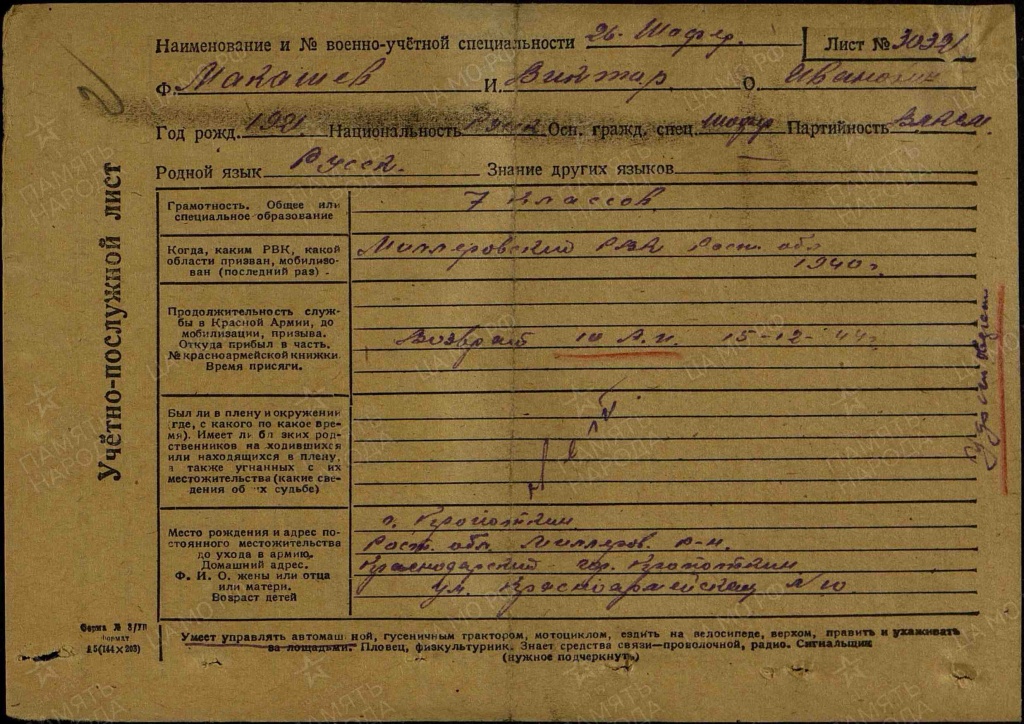 Наименование и № военно-учётной специальности 26- Шофер. Лист № 30321
Ф. Макашев И. Виктар О. Иванович
Год рожд. 1921 Национальность Русск Осн. гражд. спец. Шофер Партийность ВЛКСМ.
Родной язык Русск. Знание других языков
Учётно-послужной лист
Грамотность. Общее или специальное образование
7 классов
Когда, каким РВК, какой области призван, мобилизован (последний раз) -
Миллеровский РВК Рост. обл
1940 г.
Продолжительность службы в Красной Армии, до мобилизации, призыва. Откуда прибыл в часть. № красноармейской книжки. Время присяги.
Возврат 10 А.П. 15-12-44г.
Был ли в плену и окружении (где, с какого по какое время). Имеет ли близких родственников находившихся или находящихся в плену, а также угнанных с их местожительства (какие сведения об их судьбе)
Нет
Место рождения и адрес постоянного местожительства до ухода в армию. Домашний адрес. Ф. И. О. жены или отца или матери. Возраст детей
г. Кропоткин
Рост. обл. Миллеров. р-н.
Краснодарский гор. Кропоткин
ул. Красноармейская № 10
Форма № 8/УП
Формат
А5(144×203)
Умеет управлять автомашиной, гусеничным трактором, мотоциклом, ездить на велосипеде, верхом, править и ухаживать
за лошадьми. Пловец, физкультурник. Знает средства связи—проволочной, радио. Сигнальщик
(нужное подчеркнуть)
ПАМЯТЬ НАРОДА
ЦАМО.РФ